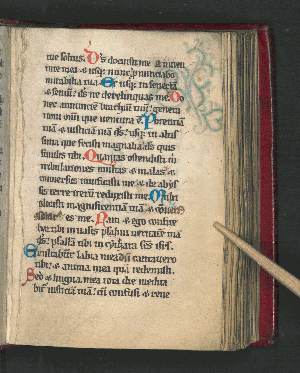 me solum. Ds docuisti me a iuuen
tute mea & usq; nunc pnunciabo
mirabilia tua. Et usq; in senecta
& seniu: ds ne derelinquas me. Do
nec annuncie brachiu tuu: genera
tioni omi que uentura e. Potentia
tua & iusticia tua ds: usq; in altis
sima que fecisti magnalia: ds quis
similis tibi. Quantas ostendisti m
tribulationes multas & malas: &
conuersus uiuificasti me: & de abys
sis terre iteru reduxisti me. Multi
plicasti magnificentia tua: & conuer
es me. Nam & ego confite
bor tibi in uasis psalmi ueritate tua
ds: psalla tibi in cythara scs isrl.
Exultabunt labia mea du cantauero
tibi: & anima mea qua redemisti.
Sed & lingua mea tota die medita
bit iusticia tua: cu confusi & reue